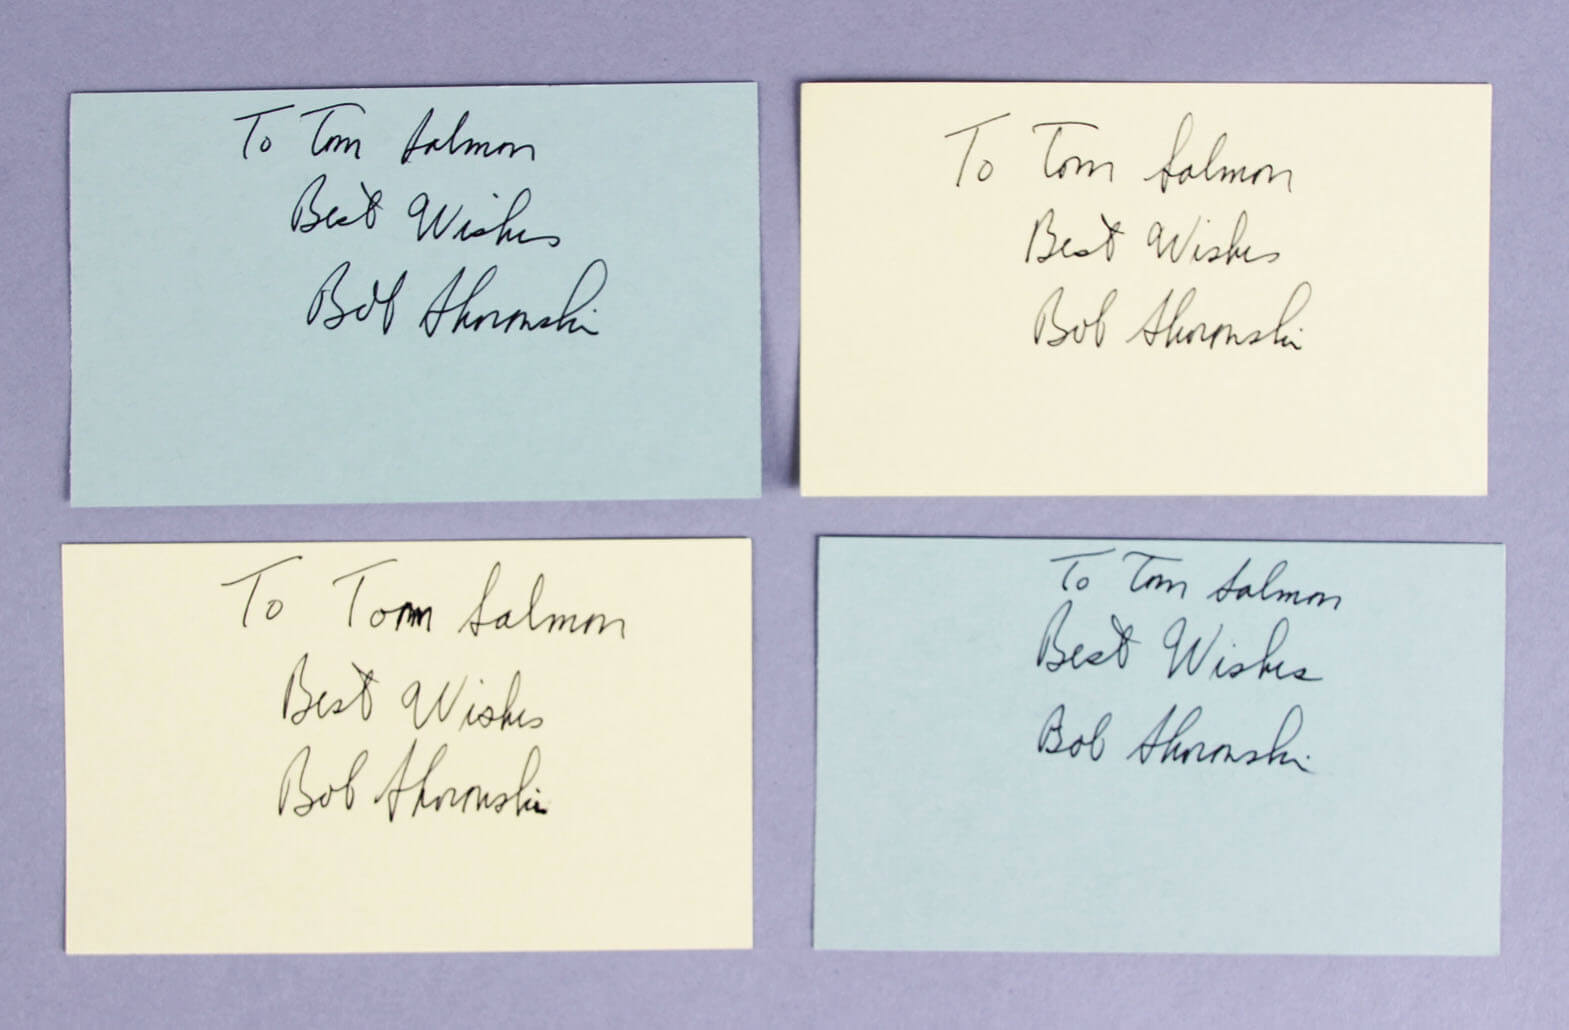 To Tom Salmon
Best Wishes
Bob Skoronski
To Tom Salmon
Best Wishes
Bob Skoronski
To Tom Salmon
Best Wishes
Bob Skoronski
To Tom Salmon
Best Wishes
Bob Skoronski